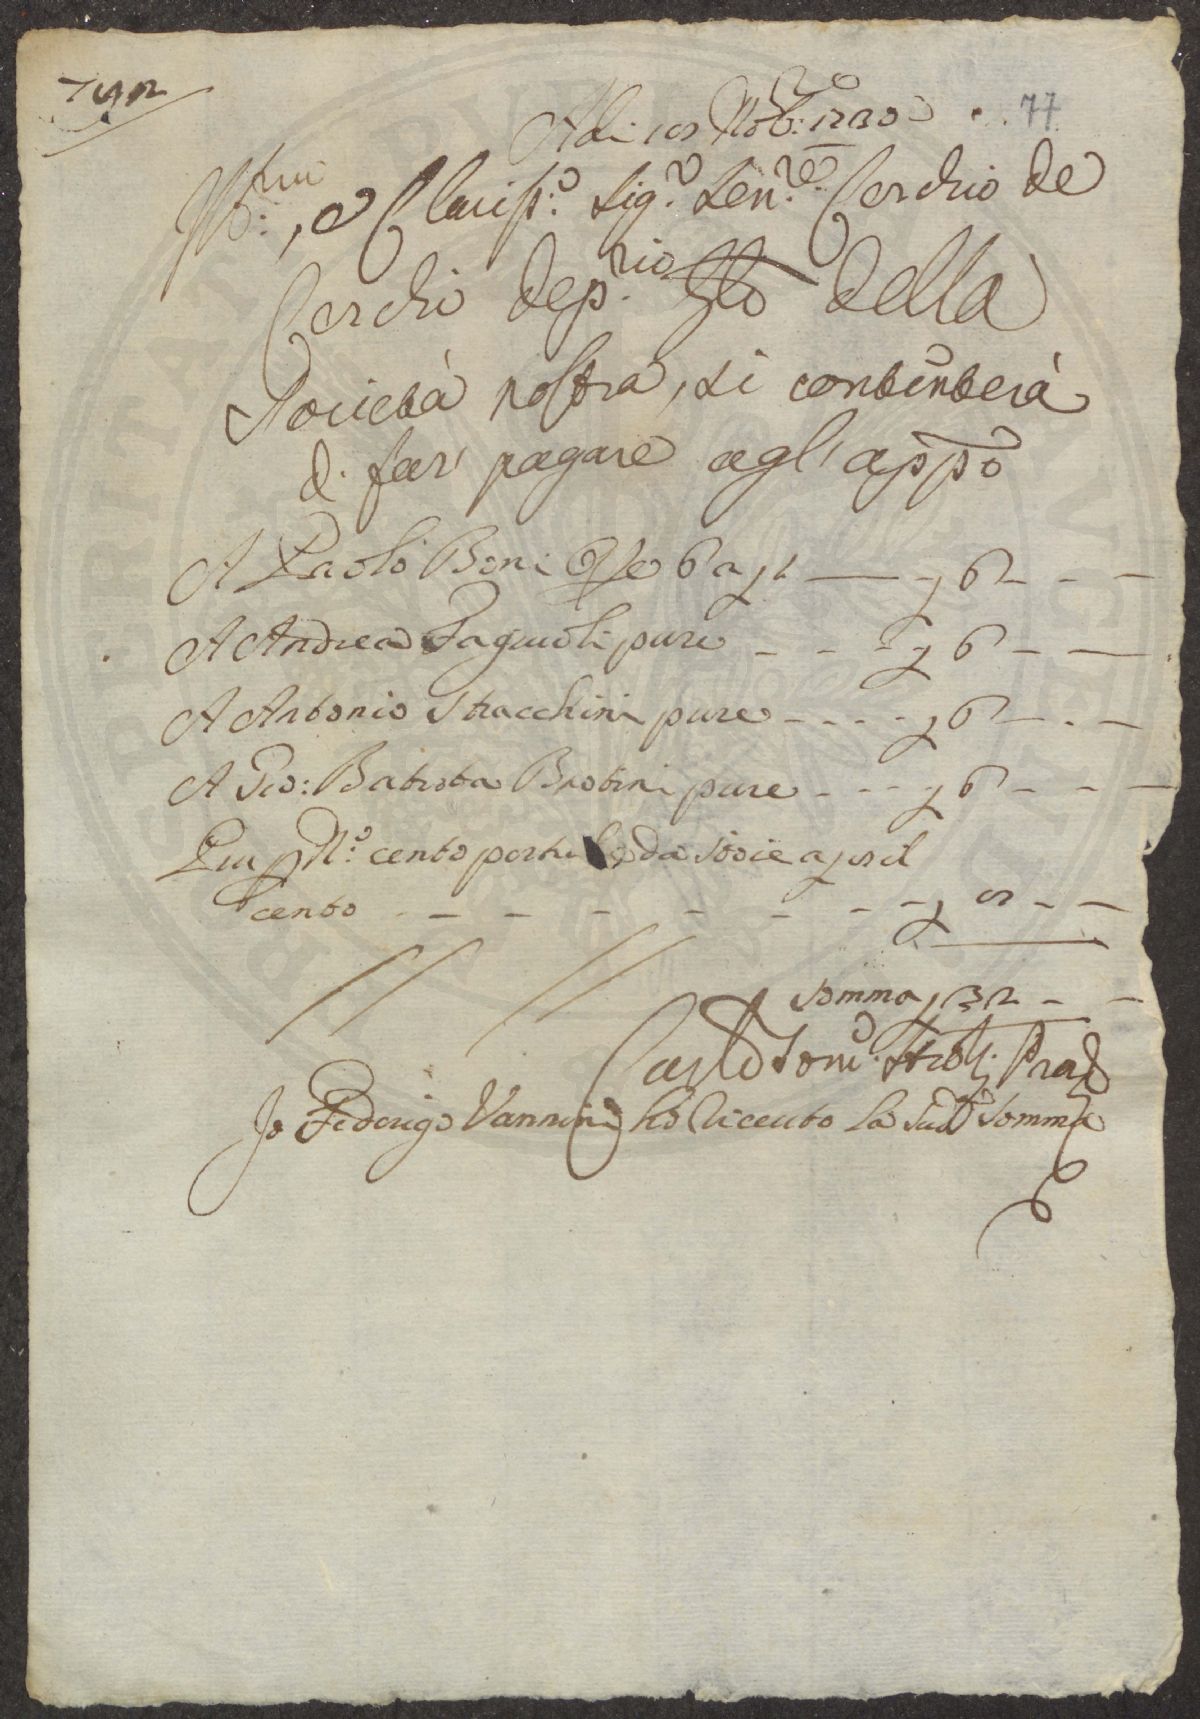 77
Adi 10 Nob:re 1730
Ill:mi, e Clariss:o Sig:r Sen:re Cerchio de
Cerchi dep:rio della
Società nostra, si contenterà
di far pagare agl'appo
A Paolo Boni 6 a £ 1 — £ 6 - - -
A Andrea Fagiuoli pure - - - £ 6 - —
A Antonio Stracchini pure - - - - £ 6 - . -
A Gio: Batista Brotini pure - - - £ 6 - - -
Più p N:o cento da Sode a £ il
cento - - - - - - - £ - -
Somma £ 32 - -
Carlo Tom:o Strozzi
Io Federigo Vannini hò riceuto la sud:a Somma